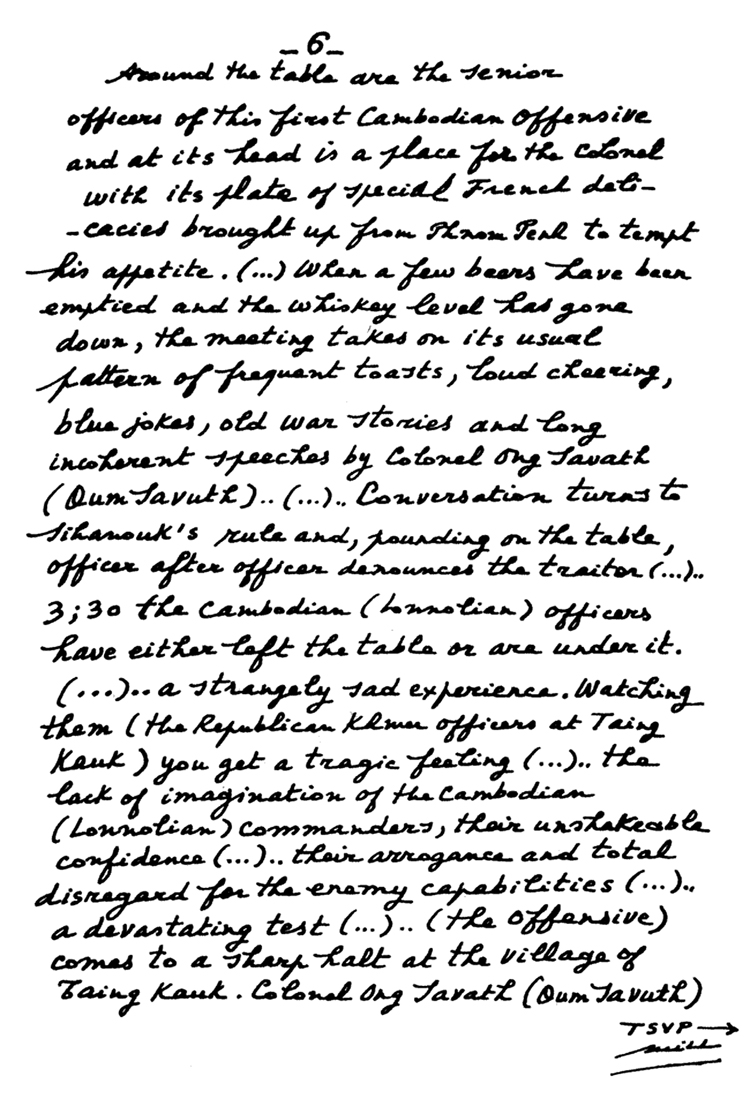 _6_
Around the table are the senior
officers of this first Cambodian Offensive
and at its head is a place for the Colonel
with its plate of special French deli-
-cacies brought up from Phnom Penh to tempt
his appetite. (...) When a few beers have been
emptied and the whiskey level has gone
down, the meeting takes on its usual
pattern of frequent toasts, loud cheering,
blue jokes, old war stories and long
incoherent speeches by Colonel Ong Savath
(Oum Savuth).. (...).. Conversation turns to
Sihanouk's rule and, pounding on the table,
officer after officer denounces the traitor (...)..
3;30 the Cambodian (Lonnolian) officers
have either left the table or are under it.
(...).. a strangely sad experience. Watching
them (the Republican Khmer officers at Taing
Kauk) you get a tragic feeling (...).. the
lack of imagination of the Cambodian
(Lonnolian) commanders, their unshakeable
confidence (...).. their arrogance and total
disregard for the enemy capabilities (...)..
a devastating test (...).. (the Offensive)
comes to a sharp halt at the village of
Taing Kauk. Colonel Ong Savath (Oum Savuth)
TSVP →